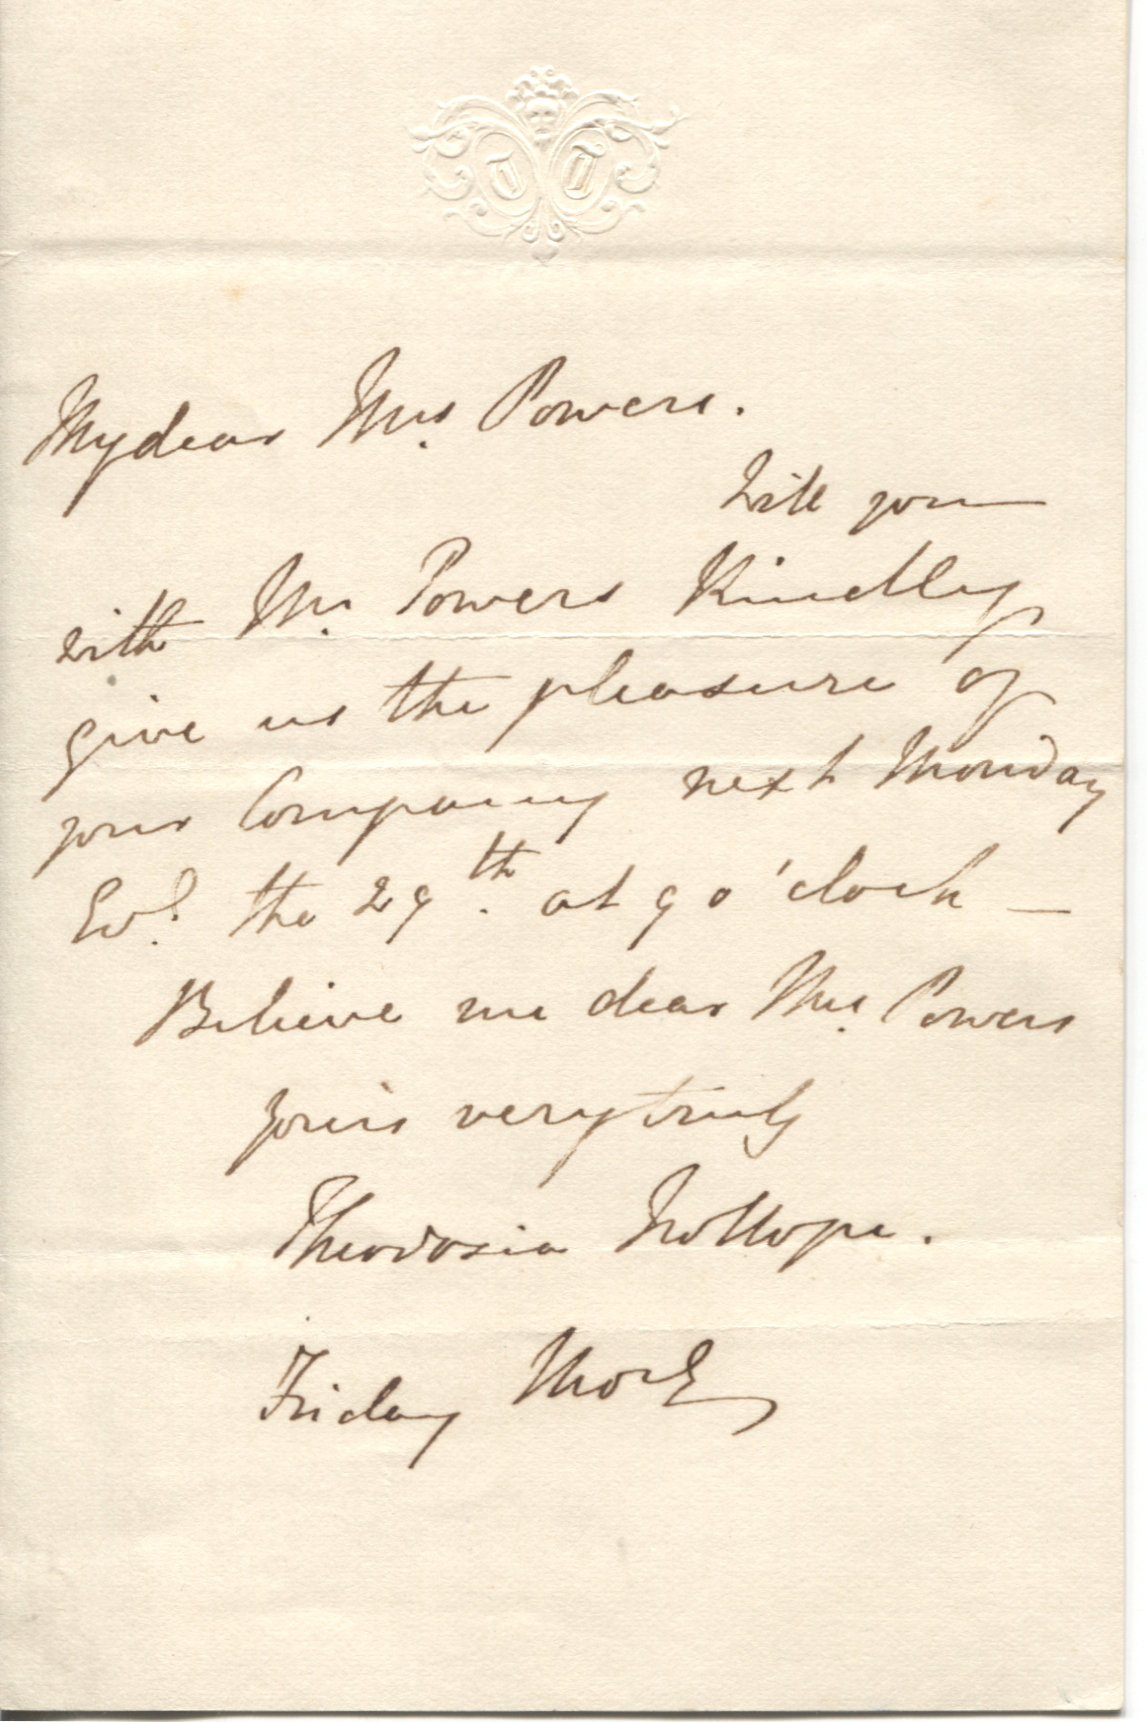 T T
My dear Mrs. Powers.
Will you
with Mr. Powers Kindly
give us the pleasure of
your Company next Monday
Evg. the 29th. at 9 o'clock —
Believe me dear Mrs. Powers
yours very truly
Theodosia Trollope.
Friday Morg